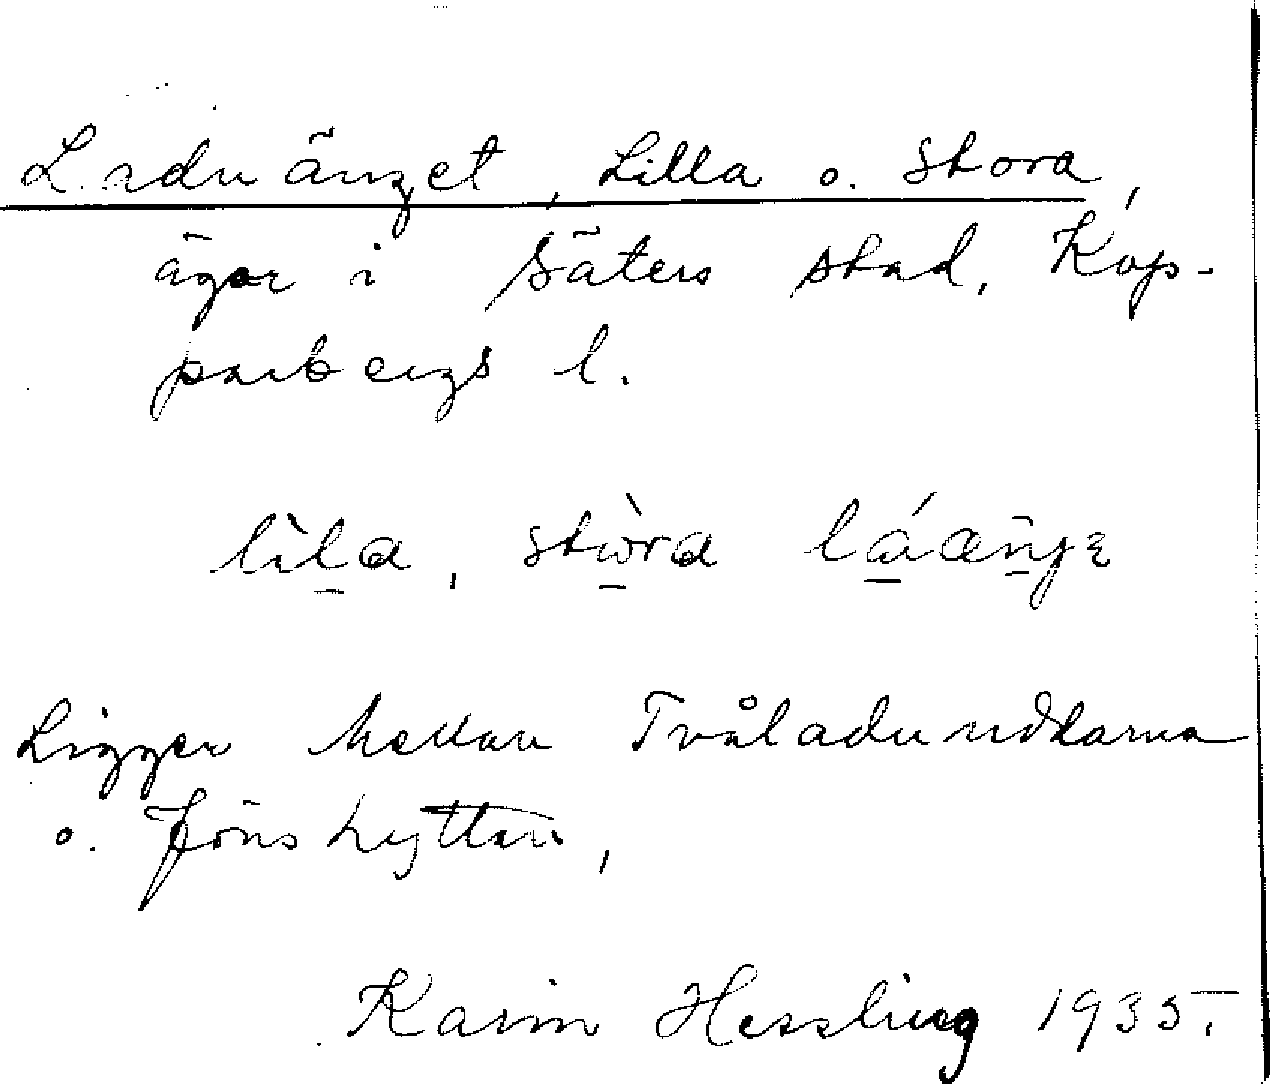 Laduänget, Lilla o. Stora,
ägor i Säters stad, Kop-
parbergs l.
lìla, stòra láaŋ̈jɛ
Ligger mellan Tvåladu
o. Jönshyttan,
Karin Hessling 1935.